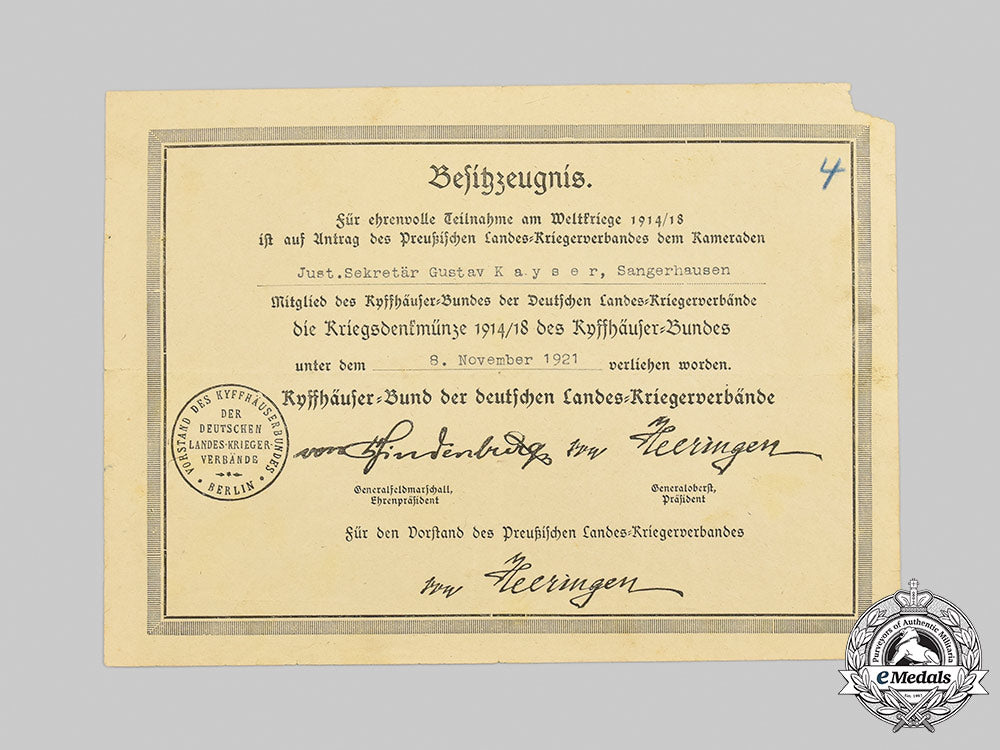 Besitzzeugnis.
4
Für ehrenvolle Teilnahme am Weltkriege 1914/18
ist auf Antrag des Preußischen Landes-Kriegerverbandes dem Kameraden
Just.Sekretär Gustav K a y s e r, Sangerhausen
Mitglied des Kyffhäuser-Bundes der Deutschen Landes-Kriegerverbände
die Kriegsdenkmünze 1914/18 des Kyffhäuser-Bundes
unter dem 8. November 1921 verliehen worden.
Kyffhäuser-Bund der deutschen Landes-Kriegerverbände
VORSTAND DES KYFFHÄUSERBUNDES
DER
DEUTSCHEN
LANDES-KRIEGER-
VERBÄNDE
BERLIN
von Hindenburg von Heeringen
Generalfeldmarschall,
Ehrenpräsident
Generaloberst,
Präsident
Für den Vorstand des Preußischen Landes-Kriegerverbandes
von Heeringen
Purveyors of Authentic Militaria
eMedals
Est. 1967